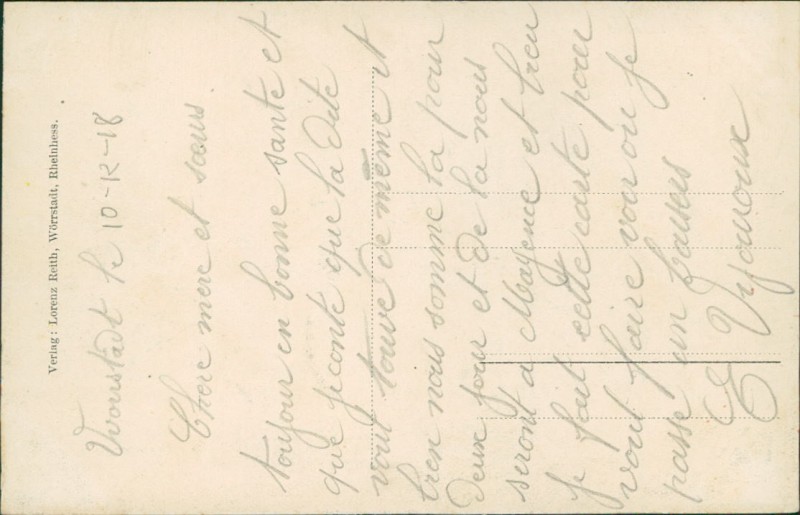 Verlag: Lorenz Reith, Wörrstadt, Rheinhess.
Wourstadt le 10-12-18
Chere mere et sœurs.
toujour en bonne sante et
que jeconte que la dite
vout touve de mème et
bien nous somme la pour
deux jour et de la nous
seront a Mayence et bien
je fait cette carte pour
vout faire voir ou je
passe un baisers